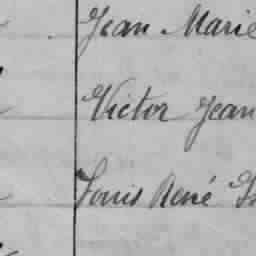 Jean Marie
Victor Jean
Louis René